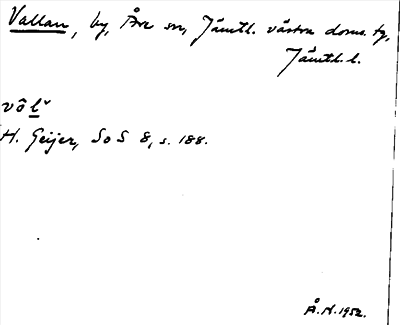 Vallan, by, Åre sn, Jämtl. västra doms. tg,
Jämtl. l.
vôlˇ
H. Geijer, SoS 8, s. 188.
Å.H. 1952.